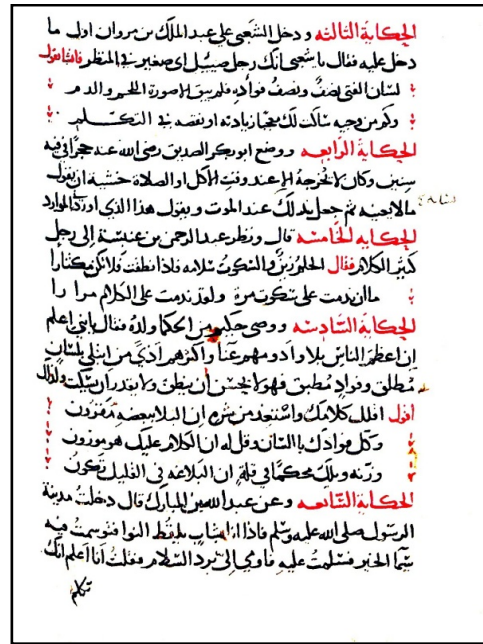 الحكاية الثالثة ودخل الشعبي على عبد الملك بن مروان اول ما
دخل عليه فقال يا شعبي انك رجل ضئيل اي صغير في المنظر فانشا يقول
لسان الفتى نصف ونصف فواده فلم يبق الا صورة اللحم والدم
وكم من وجيه ساكت لك معجبا زيادته او نقصه في التكلم
الحكاية الرابعه ووضع ابو بكر الصديق رضى الله عنه حجرا في فيه
سنين وكان لا يخرجه الا عند وقت الاكل او الصلاة خشية ان يقول
مالا يعينه ثم جعل يد لك عند الموت ويقول هذا الذي اوردنا الموارد
الحكايه الخامسه قال ونظر عبد الرحمن بن عنبسة الى رجل
كثير الكلام فقال الحلم زين والسكوت سلامه فاذا نطقت فلا تكن مكثارا
ما ان ندمت على سكوت مرة ولقد ندمت على الكلام مرا را
الحكاية السادسه ووصى حكيم من الحكما ولده فقال يا بني اعلم
ان اعظم الناس بلا وادومهم عنا واكثرهم اذى من ابتلي بلسان
مطلق وفواد مطبق فهو لا يحسن ان ينطق ولا يقدر ان يسكت ولذلك
اقول اقلل كلامك واستعد من شره ان البلا ببعضه مقرون
وكل فوادك باللسان وقل له ان الكلام عليك هو موزون
وزنه وليك محكما في قلة ان البلاغه في القليل تكون
الحكاية السابعه وعن عبد الله بن المبارك قال دخلت مدينة
الرسول صلى الله عليه وسلم فاذا انا بشاب يلتقط النوا فتوسمت فيه
سيما الخير فسلمت عليه فاومى الى برد السلام فقلت انا اعلم انك
تكلم